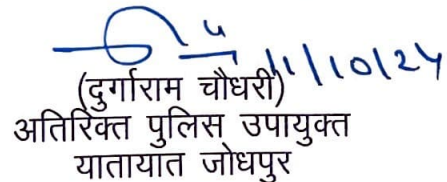 11/10/24
(दुर्गाराम चौधरी)
अतिरिक्त पुलिस उपायुक्त
यातायात जोधपुर